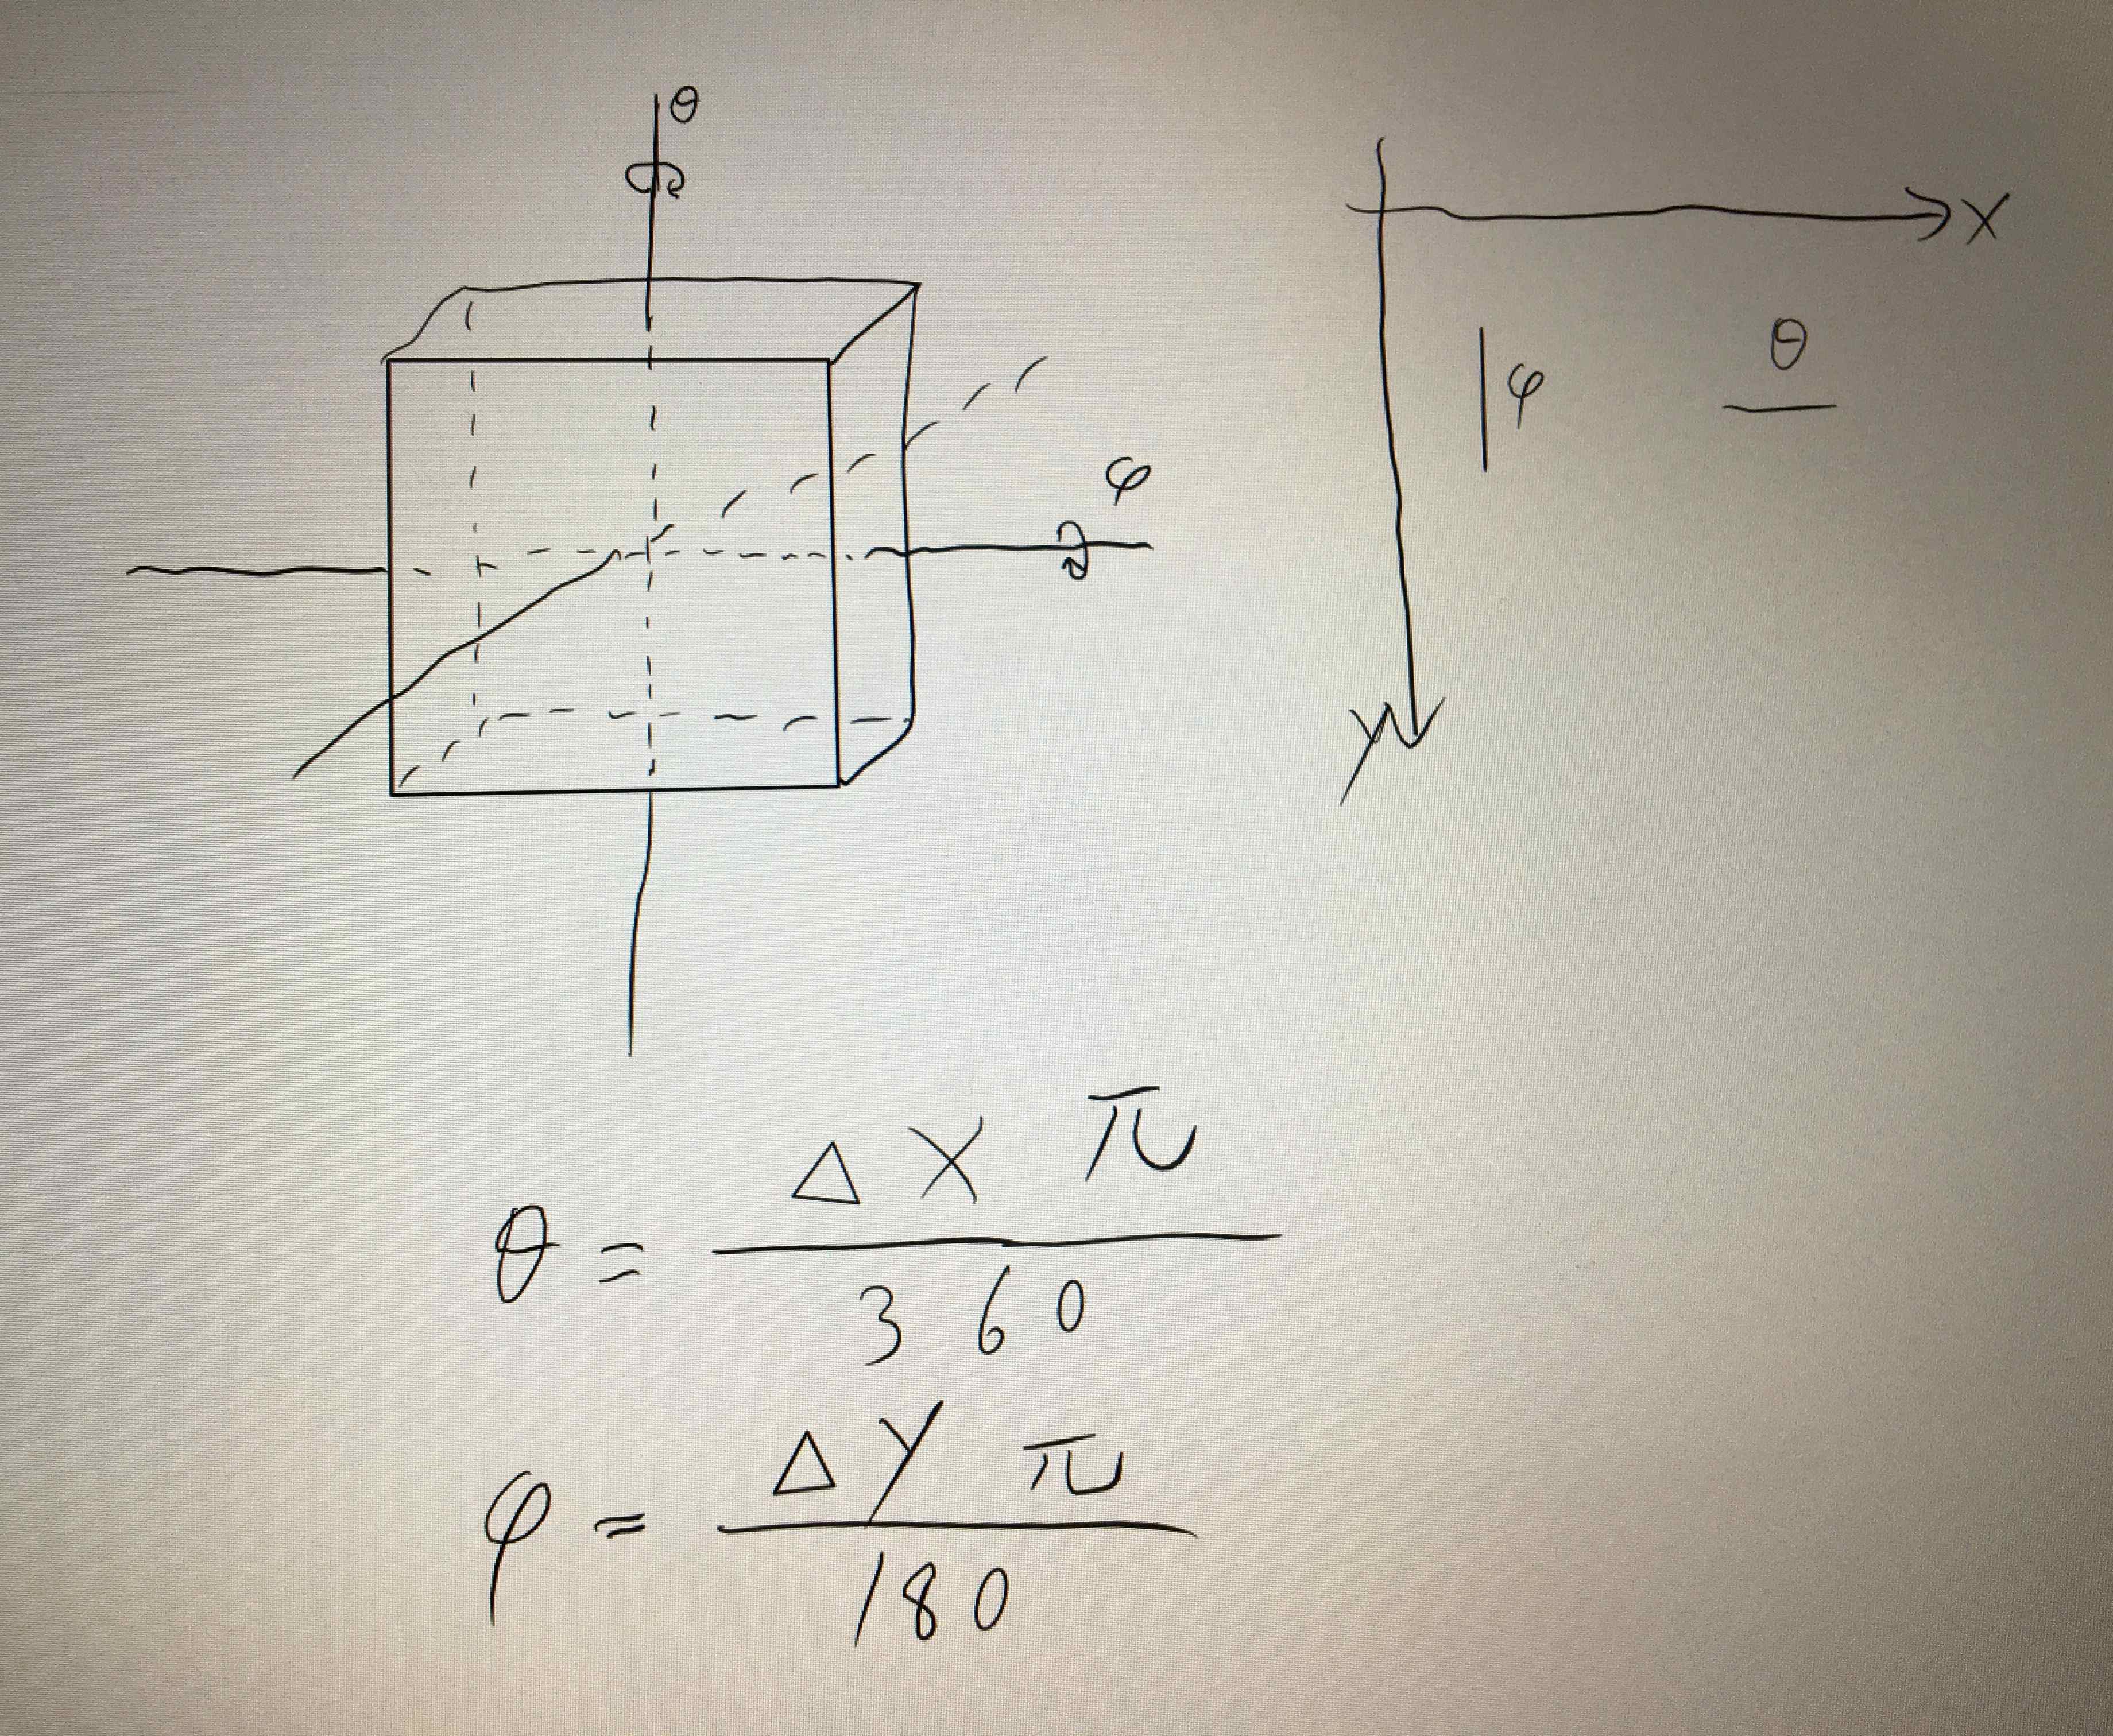 θ
X
φ
θ
φ
y
θ = ΔX π / 360
φ = Δy π / 180